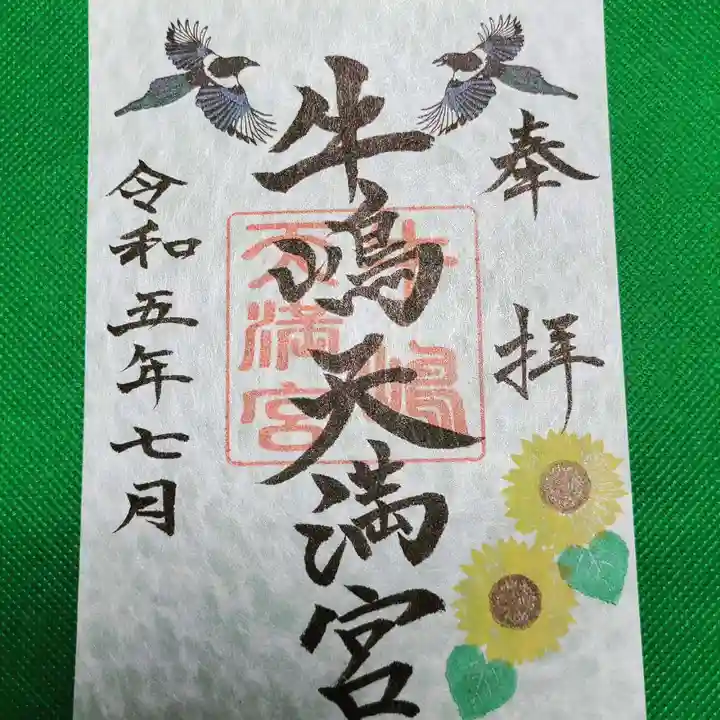 奉拝
牛嶋天満宮
牛嶋
天満宮
令和五年七月